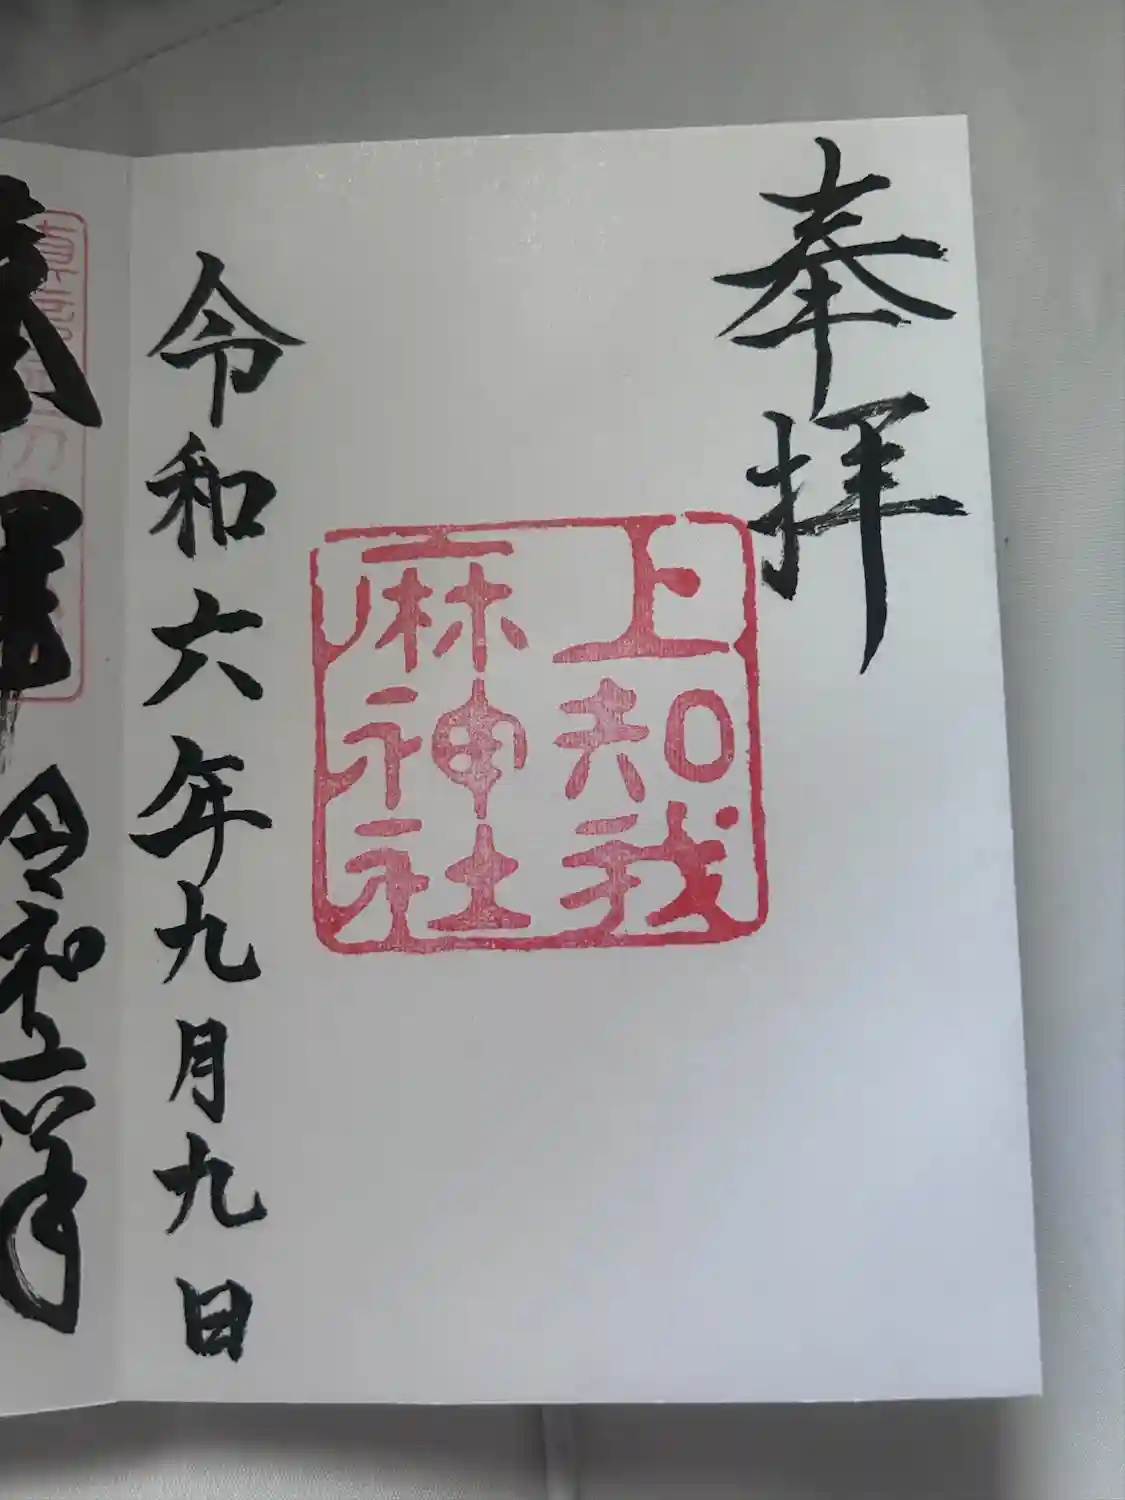 奉拝
上知我
麻神社
令和六年九月九日
令和上洋